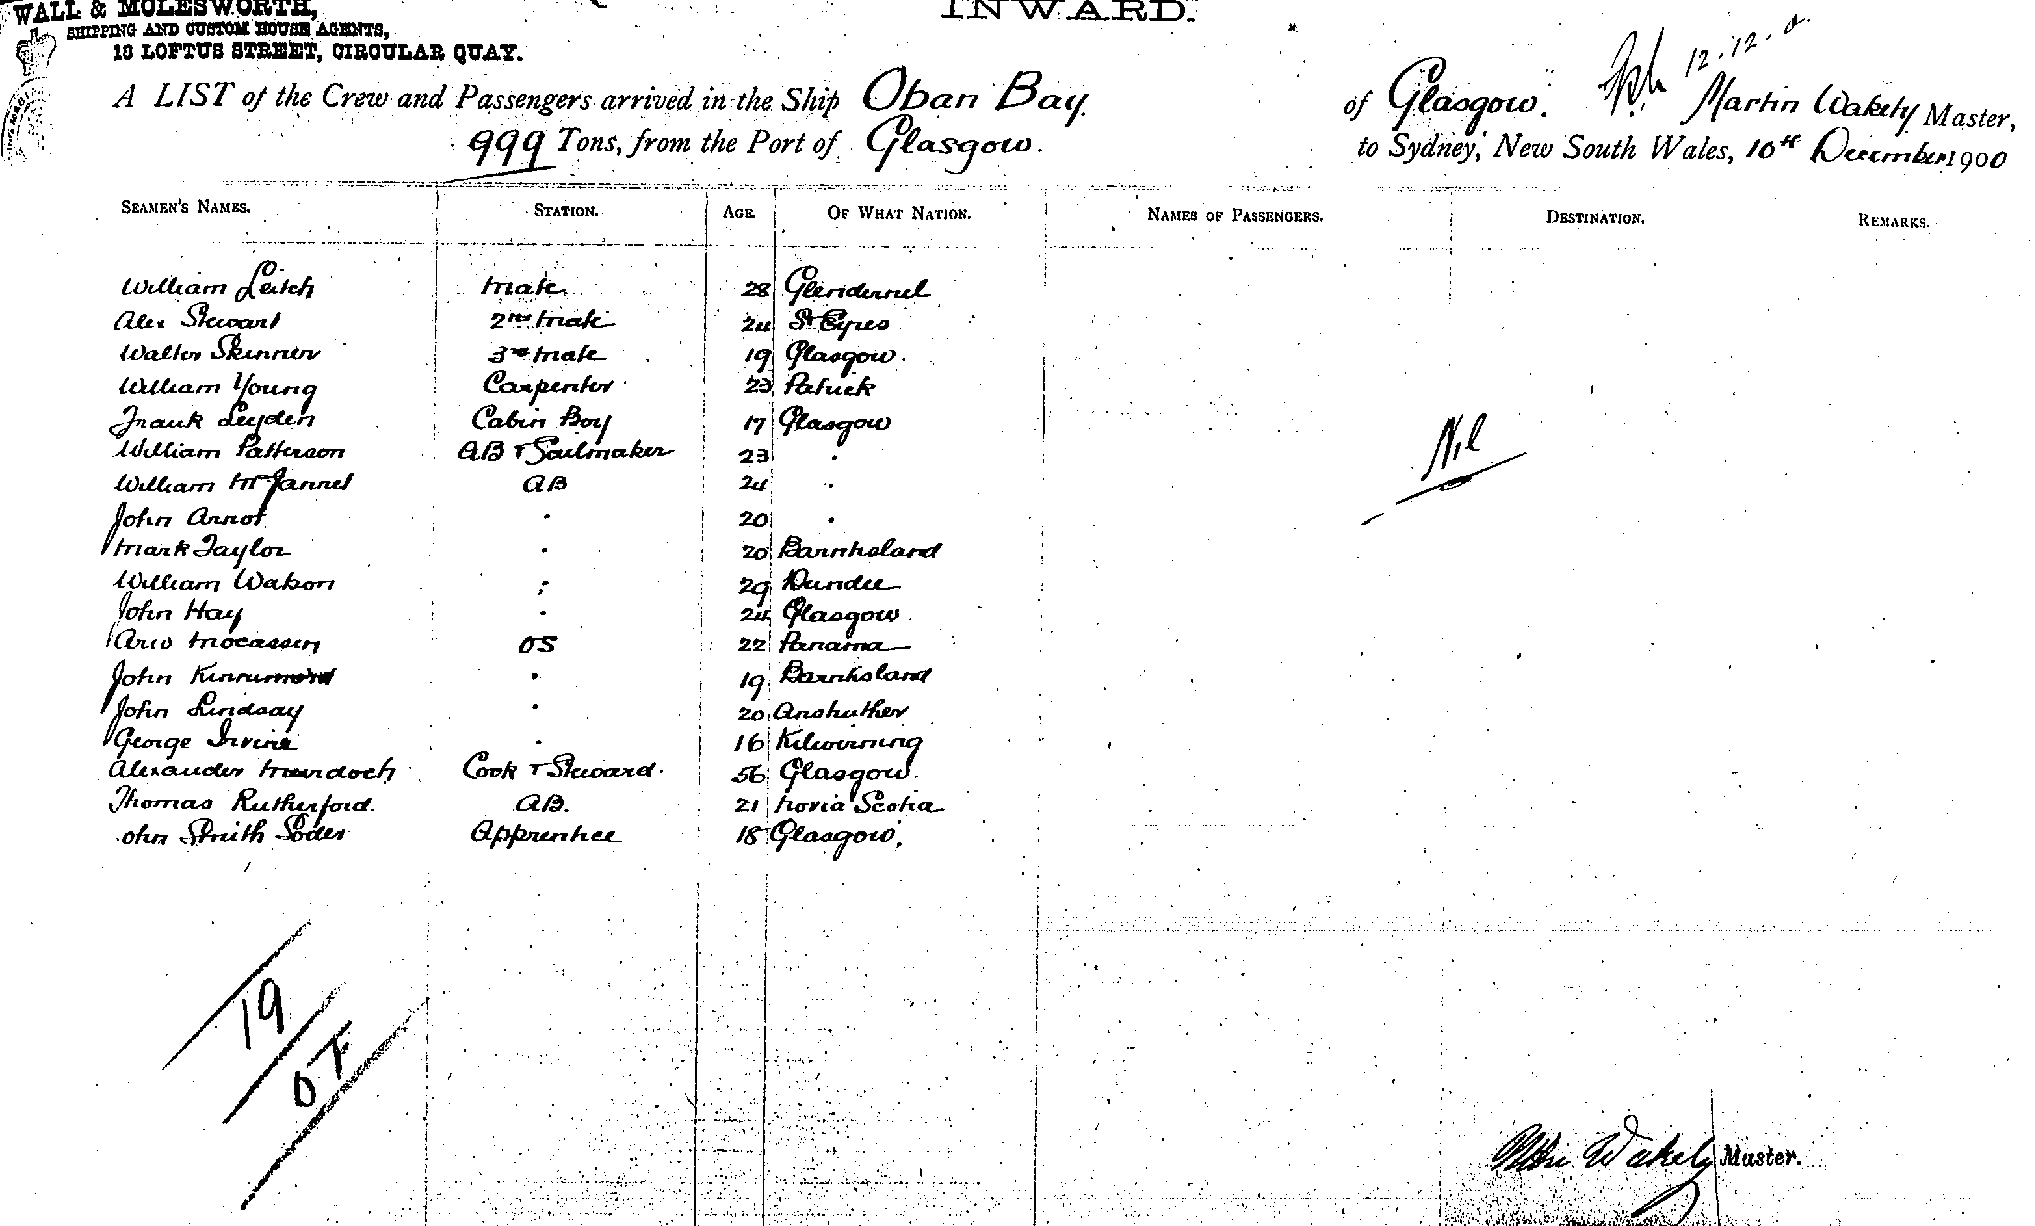 WALL & MOLESWORTH,
SHIPPING AND CUSTOM HOUSE AGENTS,
13 LOFTUS STREET, CIRCULAR QUAY.
INWARD.
12.12.0
A LIST of the Crew and Passengers arrived in the Ship Oban Bay of Glasgow. Martin Wakely Master,
999 Tons, from the Port of Glasgow. to Sydney, New South Wales, 10th December 1900
SEAMEN'S NAMES. STATION. AGE. OF WHAT NATION. NAMES OF PASSENGERS. DESTINATION. REMARKS.
William Leitch Mate 28
Alex Stewart 2nd Mate 24
Walter Skinner 3rd Mate 19 Glasgow.
William Young Carpenter 23 Patrick
Frank Leyden Cabin Boy 17 Glasgow
William Patterson AB & Sailmaker 23 "
William McJannet AB 24 "
John Arnot " 20 "
Mark Taylor " 20 Barnhsland
William Watson " 29 Dundee
John Hay " 24 Glasgow
Mocassin OS 22 Panama
John " 19 Barnhsland
John Lindsay " 20 Anstruther
George Irvine " 16 Kilwinning
Alexander Murdoch Cook & Steward. 56 Glasgow.
Thomas Rutherford. AB. 21 Novia Scotia
ohn Smith Apprentice 18 Glasgow.
Nil
19
OF
Wakely Master.